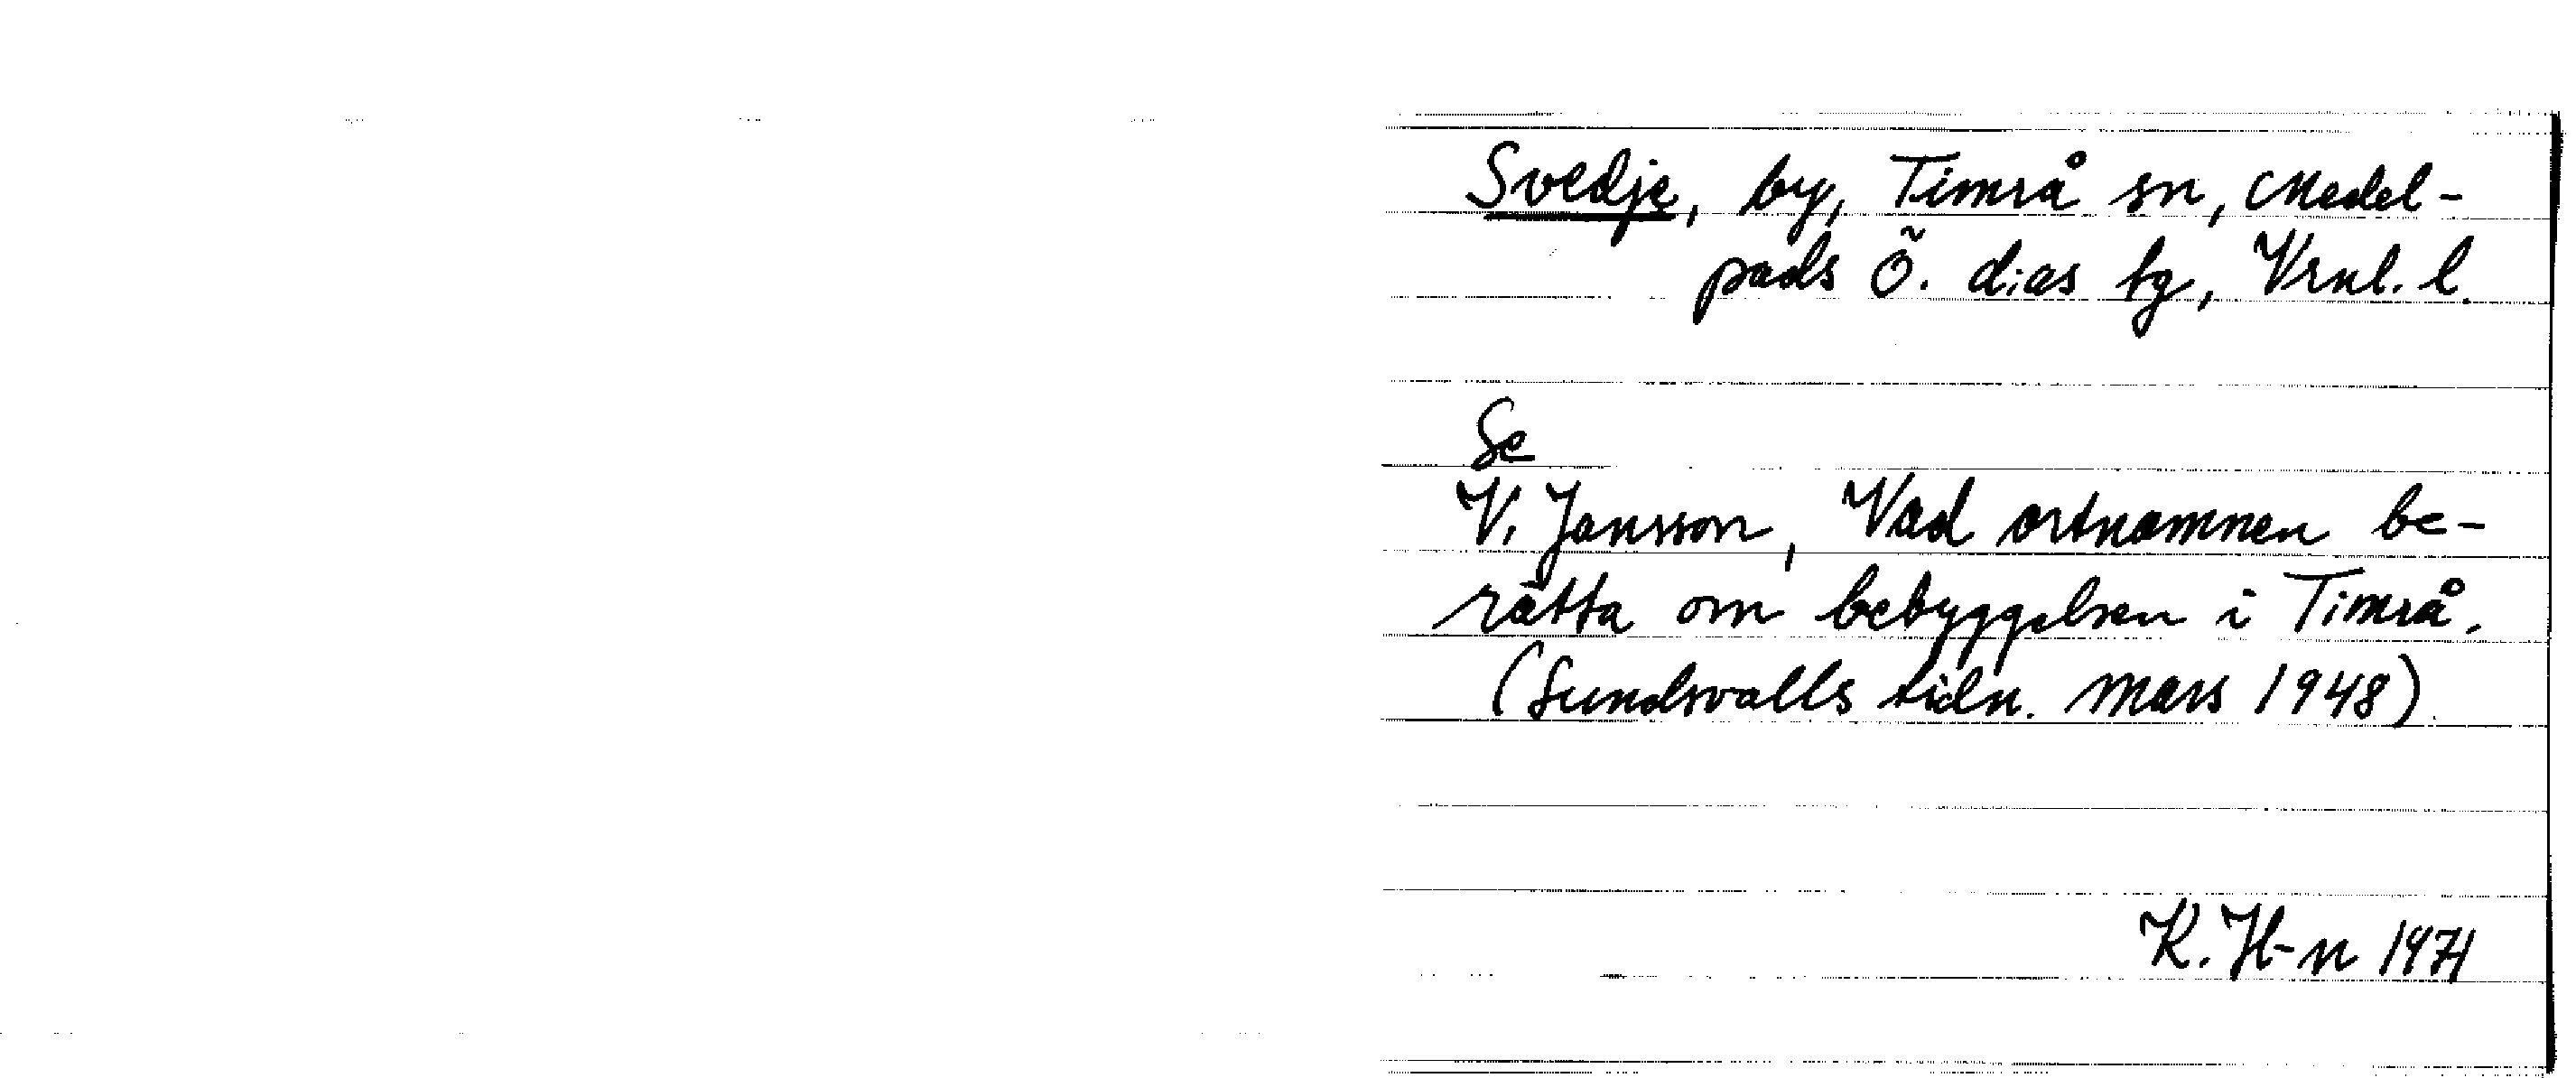 Svedje, by, Timrå sn, Medel-
pads Ö. d:as tg, Vrnl. l.
Se
V. Jansson, Vad ortnamnen be-
rätta om bebyggelsen i Timrå.
(Sundsvalls tidn. mars 1948)
K. H-n 1971